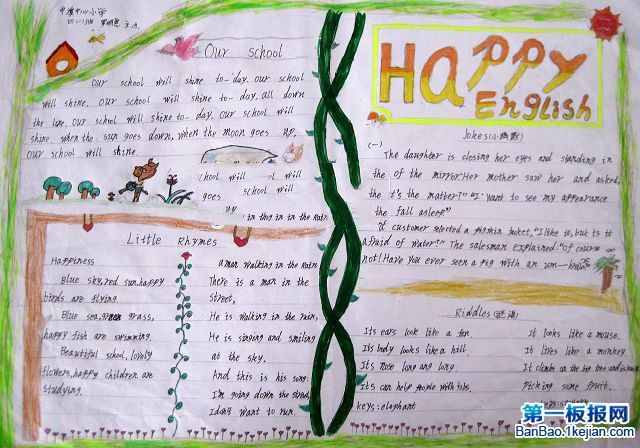 中 中心小学
四
Our school
Our school will shine to-day. Our school
will shine. Our school will shine to-day, all down
the line. Our school will shine to-day. Our school will
shine. when the sun goes down, when the moon goes up,
Our school will shine.
school will
goes school will
in the in in the Rain
Little Rhymes
Happiness
Blue sky, red sun, happy
birds are flying.
Blue sea, green grass,
happy fish are swimming.
Beautiful school, lovely
flowers, happy children are
studying.
a man walking in the Rain
There is a man in the
street,
He is walking in the rain,
He is singing and smiling
at the sky.
And this is his song.
I'm going down the
want to run.
HAPPY
English
Jokes(小幽默)
(一)
The daughter is closing her eyes and standing in
the of the mirror. Her mother saw her and asked,
the it's the matter?" "I want to see my appearance
the fall asleep."
customer selected a pigskin jacket, "I like it, but is it
afraid of water?" The salesman explained: "Of course
not! Have you ever seen a pig with an um—
Riddles(谜语)
Its ears look like a fan.
Its body looks like a hill.
Its nose long ang long.
Its can help people with jobs.
keys: elephant
It looks like a mouse.
It lives like a monkey.
It climbs on the big tree and is
Picking some fruit.
第一板报网
BanBao.1kejian.com